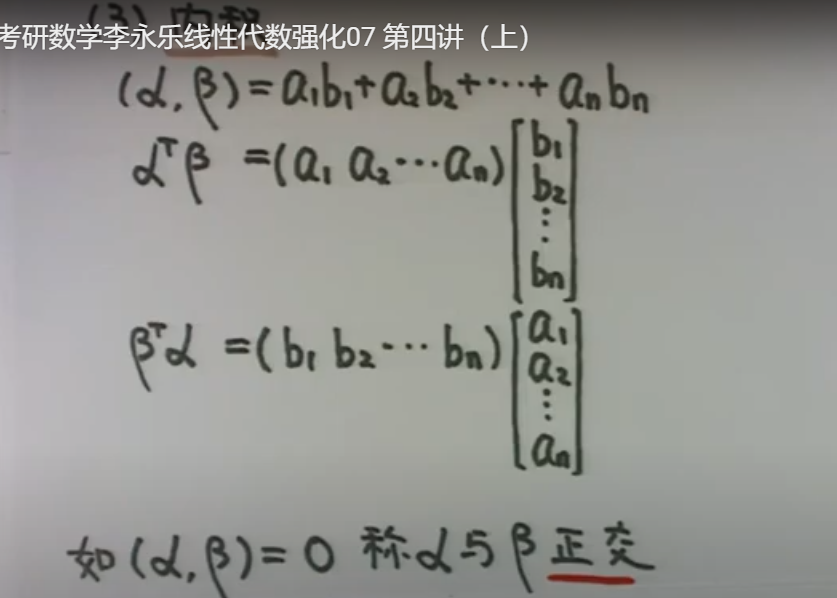 (3) 内积
考研数学李永乐线性代数强化07 第四讲（上）
(α, β) = a₁b₁ + a₂b₂ + ⋯ + aₙbₙ
αᵀβ = (a₁ a₂ ⋯ aₙ) [b₁ b₂ ⋮ bₙ]
βᵀα = (b₁ b₂ ⋯ bₙ) [a₁ a₂ ⋮ aₙ]
如 (α, β) = 0 称 α 与 β 正交